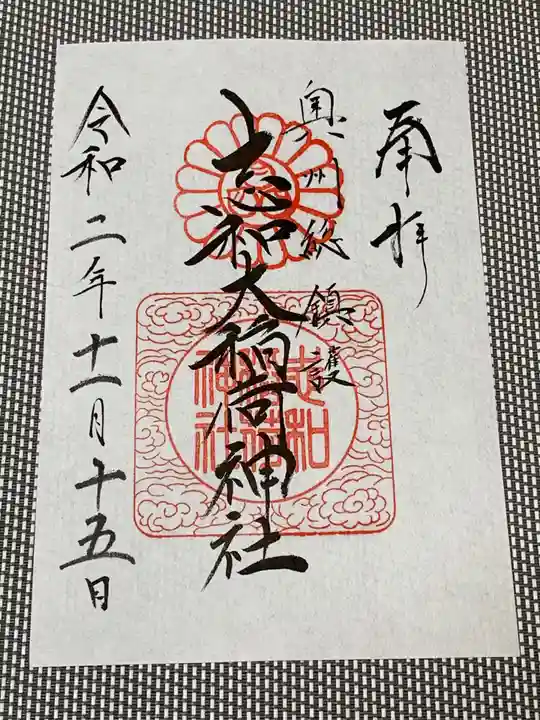 奉拝
奥州総鎮護
志和大稲荷神社
志和
稲荷
神社
令和二年十一月十五日